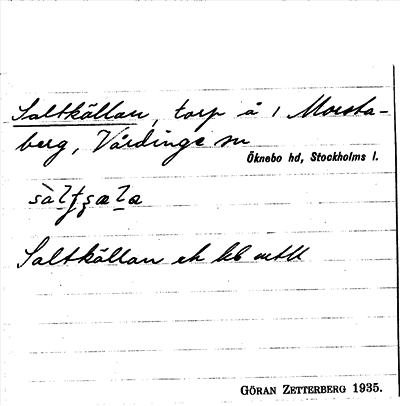 Saltkällan, torp å 1 Morsta-
berg, Vårdinge sn
Öknebo hd, Stockholms l.
Saltkällan ek bb
GÖRAN ZETTERBERG 1935.